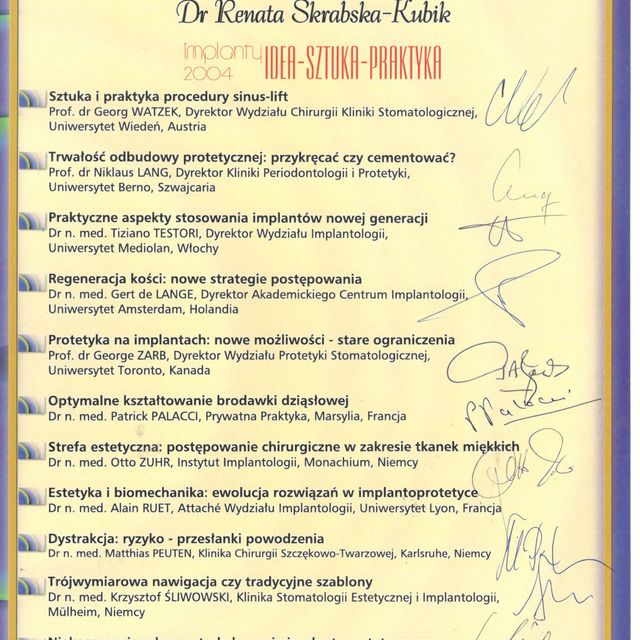 Dr Renata Skrabska-Kubik
implanty
2004 IDEA-SZTUKA-PRAKTYKA
Sztuka i praktyka procedury sinus-lift
Prof. dr Georg WATZEK, Dyrektor Wydziału Chirurgii Kliniki Stomatologicznej,
Uniwersytet Wiedeń, Austria
Trwałość odbudowy protetycznej: przykręcać czy cementować?
Prof. dr Niklaus LANG, Dyrektor Kliniki Periodontologii i Protetyki,
Uniwersytet Berno, Szwajcaria
Praktyczne aspekty stosowania implantów nowej generacji
Dr n. med. Tiziano TESTORI, Dyrektor Wydziału Implantologii,
Uniwersytet Mediolan, Włochy
Regeneracja kości: nowe strategie postępowania
Dr n. med. Gert de LANGE, Dyrektor Akademickiego Centrum Implantologii,
Uniwersytet Amsterdam, Holandia
Protetyka na implantach: nowe możliwości - stare ograniczenia
Prof. dr George ZARB, Dyrektor Wydziału Protetyki Stomatologicznej,
Uniwersytet Toronto, Kanada
Optymalne kształtowanie brodawki dziąsłowej
Dr n. med. Patrick PALACCI, Prywatna Praktyka, Marsylia, Francja
PPalacci
Strefa estetyczna: postępowanie chirurgiczne w zakresie tkanek miękkich
Dr n. med. Otto ZUHR, Instytut Implantologii, Monachium, Niemcy
Estetyka i biomechanika: ewolucja rozwiązań w implantoprotetyce
Dr n. med. Alain RUET, Attaché Wydziału Implantologii, Uniwersytet Lyon, Francja
Dystrakcja: ryzyko - przesłanki powodzenia
Dr n. med. Matthias PEUTEN, Klinika Chirurgii Szczękowo-Twarzowej, Karlsruhe, Niemcy
Trójwymiarowa nawigacja czy tradycyjne szablony
Dr n. med. Krzysztof ŚLIWOWSKI, Klinika Stomatologii Estetycznej i Implantologii,
Mülheim, Niemcy